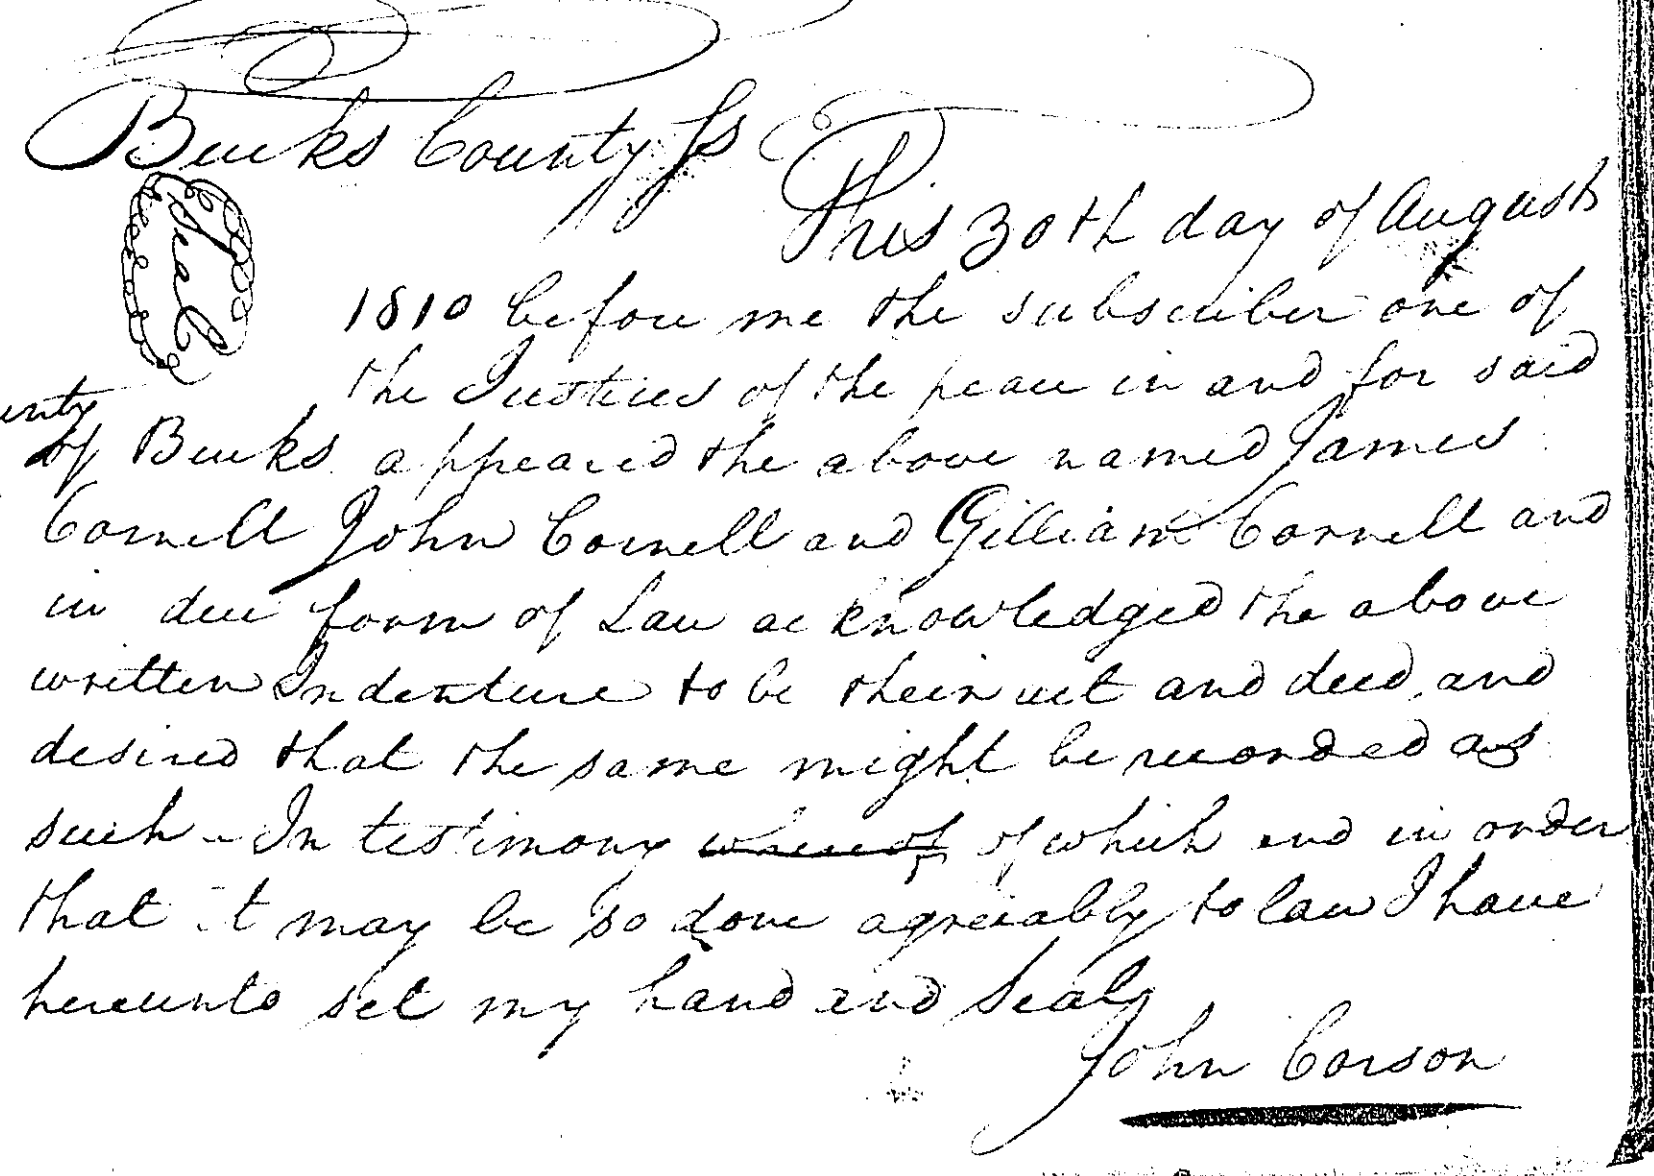 Bucks County Ss
Seal
This 30th day of August
1810 before me the subscriber one of
the Justices of the peace in and for said
unty
of Bucks appeared the above named James
Cornell John Cornell and Gilliam Cornell and
in due form of Law acknowledged the above
written Indenture to be their act and deed, and
desired that the same might be recorded as
such - In testimony whereof of which and in order
that it may be so done agreeably to law I have
hereunto set my hand and Seal
John Corson